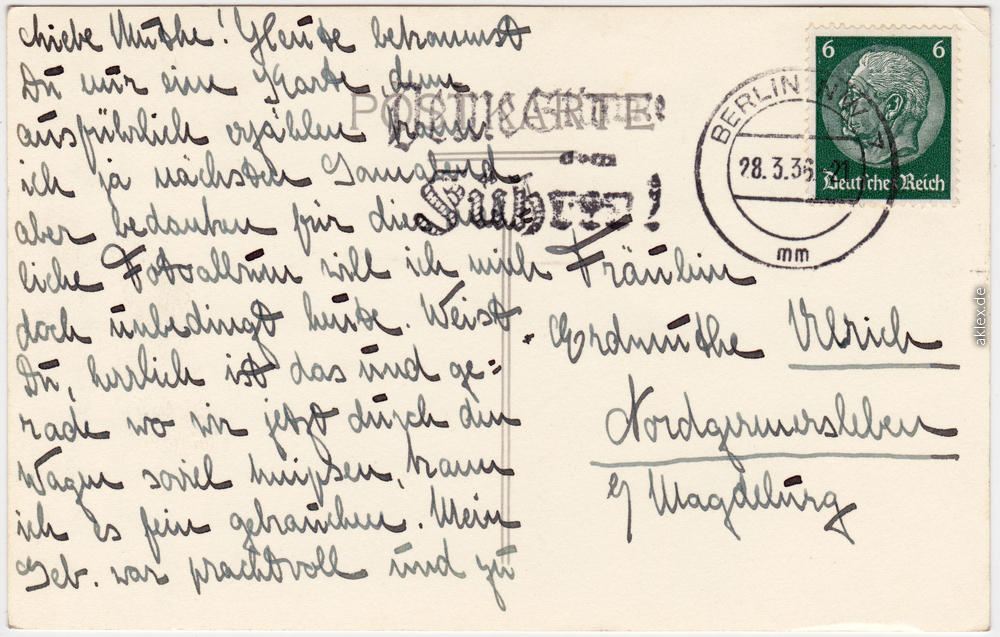 Liebe Muthe! Heute bekommst
Du nur eine Karte, denn
ausführlich erzählen kann
ich ja nächsten Sonnabend
aber bedanken für dies
liche Fotoalbum will ich mich
doch unbedingt heute. Weist
Du, herrlich ist das und ge=
rade wo wir jetzt durch den
Wagen soviel knipsen, kann
ich es fein gebrauchen. Mein
Geb. war prachtvoll und zu
POSTKARTE
dem
Führer!
BERLIN NW 7
28.3.36.-21
mm
6 6
Deutsches Reich
Fräulein
Erdmuthe Ulrich
Nordgermersleben
b/ Magdeburg
aklex.de